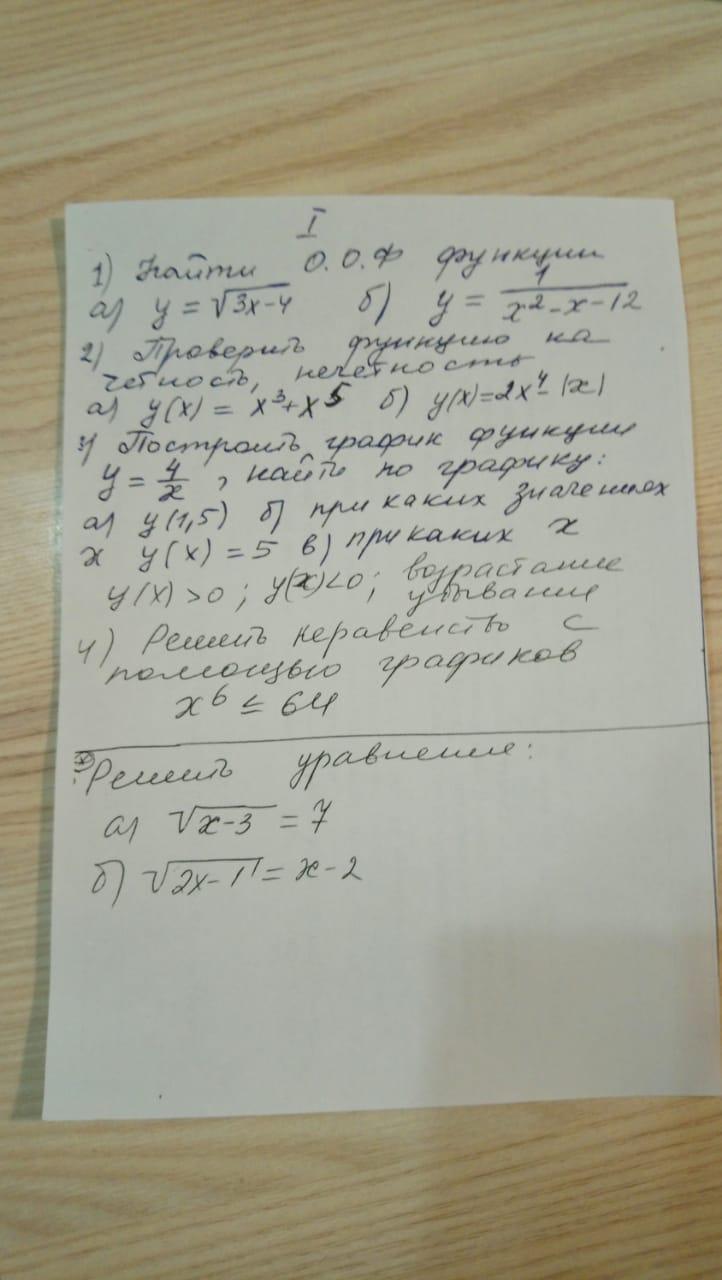 I
1) Найти О.О.Ф функции
а) y = √3x-4 б) y = 1/(x²-x-12)
2) Проверить функцию на
четность, нечетность
а) y(x) = x³+x⁵ б) y(x)=2x⁴-|x|
3) Построить график функции
y = 4/x, найти по графику:
а) y(1,5) б) при каких значениях
x y(x) = 5 в) при каких x
y(x) >0; y(x)<0; возрастание
убывание
4) Решить неравенство с
помощью графиков
x⁶ ≤ 64
Решить уравнение:
а) √x-3 = 7
б) √2x-1 = x-2